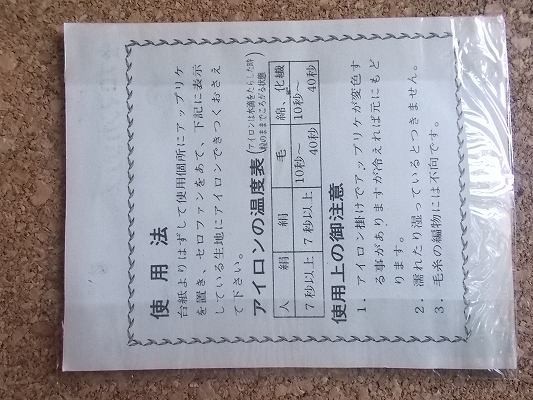 使用法
台紙よりはずして使用個所にアップリケ
を置き、セロファンをあて、下記に表示
している生地にアイロンできつくおさえ
て下さい。
アイロンの温度表(アイロンは水滴をたらした時粒のままでころがる状態)
人絹 絹 毛 綿、化繊
7秒以上 7秒以上 10秒〜40秒 10秒〜40秒
使用上の御注意
1. アイロン掛けでアップリケが変色す
る事がありますが冷えれば元にもど
ります。
2. 濡れたり湿っているとつきません。
3. 毛糸の編物には不向です。